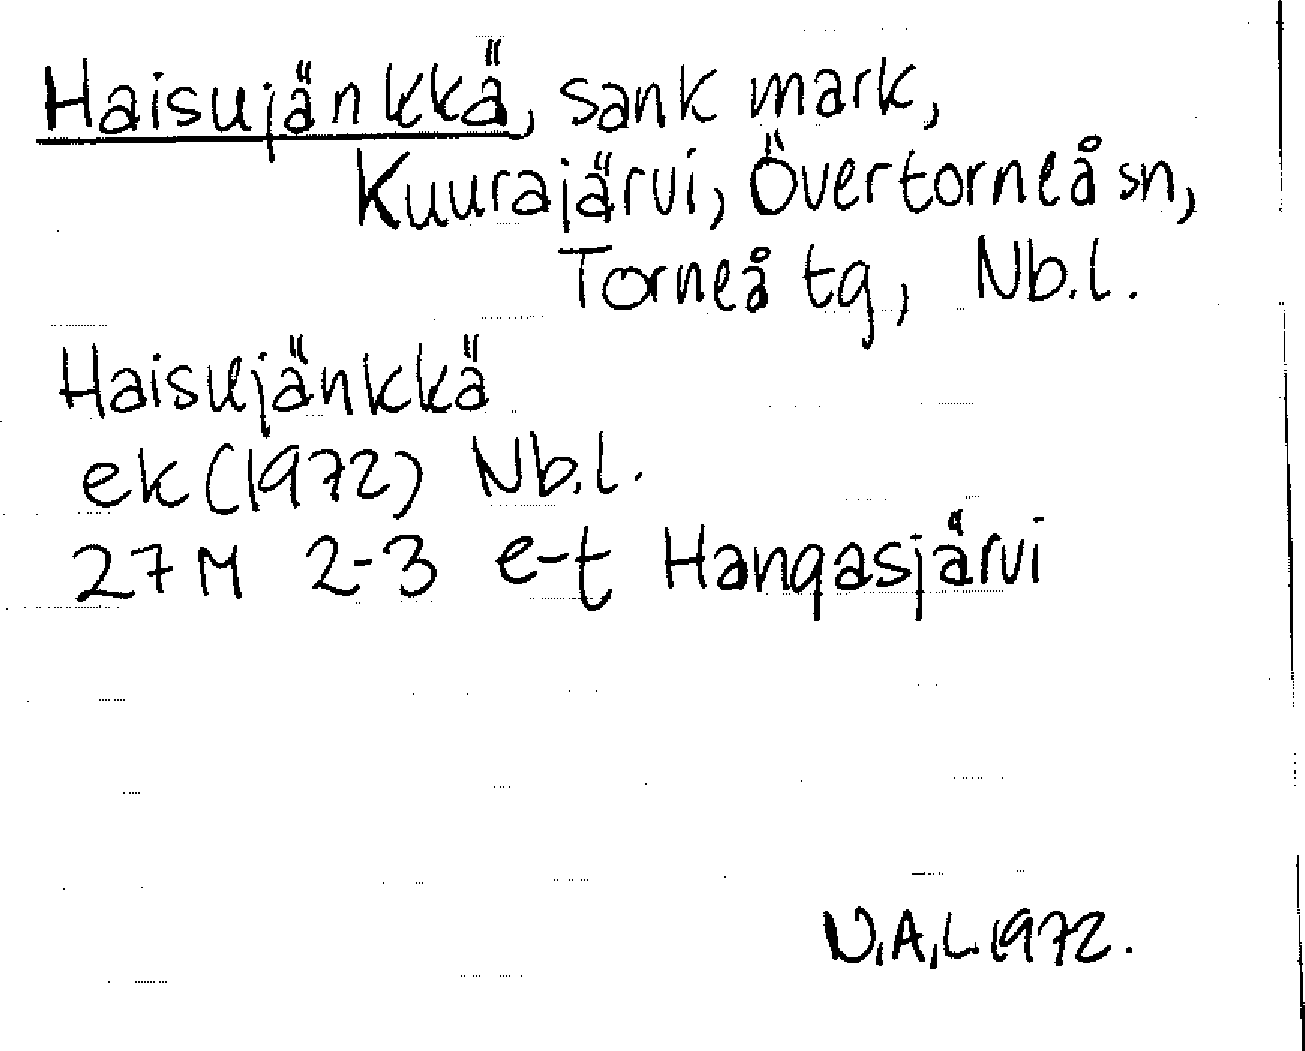 Haisujänkkä, sank mark,
Kuurajärvi, Övertorneå sn,
Torneå tg, Nb.l.
Haisujänkkä
ek (1972) Nb.l.
27M 2-3 e-t Hangasjärvi
N.A.L. 1972.